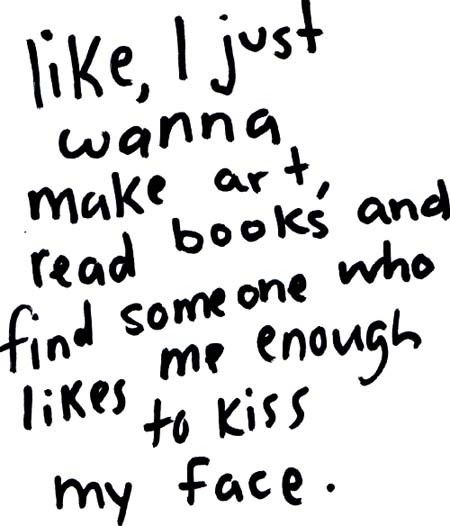 like, I just
wanna
make art,
read books and
find someone who
likes me enough
to kiss
my face.